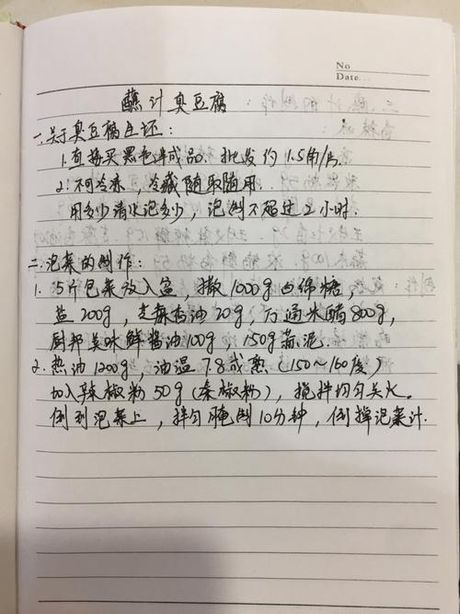 No
Date
蘸汁臭豆腐
一.关于臭豆腐生坯:
1.直接买黑色半成品.批发约1.5角/片
2.不可冷冻.冷藏随取随用.
用多少清水泡多少,泡制不超过2小时.
二.泡菜的制作:
1.5斤包菜放入盆,撒1000g白绵糖,
盐200g,芝麻香油20g,万通米醋800g,
厨邦美味鲜酱油100g,150g蒜泥.
2.热油1200g,油温7.8成熟(150~160度)
加入辣椒粉50g(辣椒粉),搅拌均匀关火.
倒到泡菜上,拌匀腌制10分钟,倒掉泡菜汁.